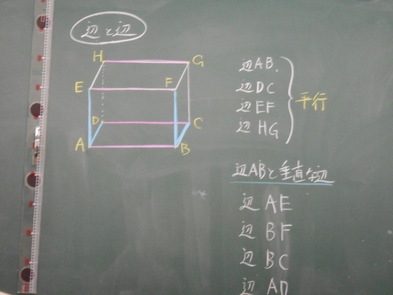 辺と辺
H
G
E
F
D
C
A
B
辺AB
辺DC
辺EF
辺HG
平行
辺ABと垂直な辺
辺 AE
辺 BF
辺 BC
辺 AD